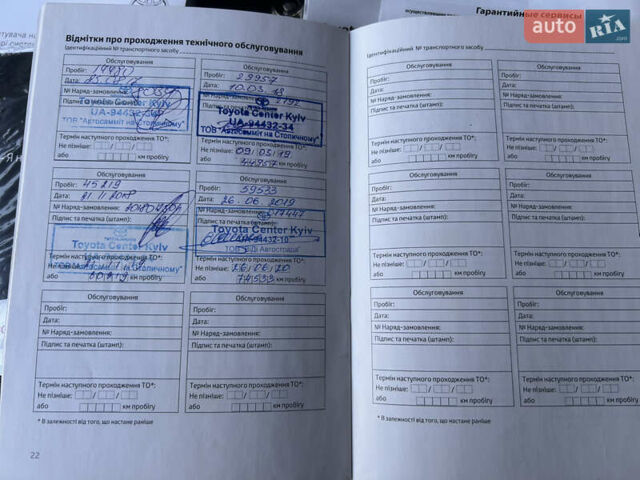 Гарантийные
сервисы
auto RIA.com
Відмітки про проходження технічного обслуговування
Ідентифікаційний № транспортного засобу
Обслуговування
Пробіг: 14480
Дата:
№ Наряд-замовлення:
Підпис
Toyota Center Kyiv
UA-94432-34
ТОВ "Автосамміт на Столичному"
Термін наступного проходження ТО*:
Не пізніше:
або км пробігу
Обслуговування
Пробіг: 29957
Дата: 10.03.18
Toyota Center Kyiv
UA-94432-34
ТОВ "Автосамміт на Столичному"
Термін наступного проходження ТО*:
Не пізніше: 09/03/19
або 44957 км пробігу
Обслуговування
Пробіг: 45219
Дата: 21.11.2018
№ Наряд-замовлення:
Підпис та печатка (штамп):
Toyota Center Kyiv
"Автосамміт на Столичному"
Не пізніше:
або 60219 км пробігу
Обслуговування
Пробіг: 59533
Дата: 26.06.2019
№ Наряд-замовлення:
Підпис та печатка (штамп):
Toyota Center Kyiv
Не пізніше: 26/06/20
або 74533 км пробігу
Обслуговування
Пробіг:
Дата:
№ Наряд-замовлення:
Підпис та печатка (штамп):
Термін наступного проходження ТО*:
Не пізніше:
або км пробігу
Обслуговування
Пробіг:
Дата:
№ Наряд-замовлення:
Підпис та печатка (штамп):
Термін наступного проходження ТО*:
Не пізніше:
або км пробігу
* В залежності від того, що настане раніше
22
Ідентифікаційний № транспортного засобу
Обслуговування
Пробіг:
Дата:
№ Наряд-замовлення:
Підпис та печатка (штамп):
Термін наступного проходження ТО*:
Не пізніше:
або км пробігу
Обслуговування
Пробіг:
Дата:
№ Наряд-замовлення:
Підпис та печатка (штамп):
Термін наступного проходження ТО*:
Не пізніше:
або км пробігу
Обслуговування
Пробіг:
Дата:
№ Наряд-замовлення:
Підпис та печатка (штамп):
Термін наступного проходження ТО*:
Не пізніше:
або км пробігу
Обслуговування
Пробіг:
Дата:
№ Наряд-замовлення:
Підпис та печатка (штамп):
Термін наступного проходження ТО*:
Не пізніше:
або км пробігу
Обслуговування
Пробіг:
Дата:
№ Наряд-замовлення:
Підпис та печатка (штамп):
Термін наступного проходження ТО*:
Не пізніше:
або км пробігу
Обслуговування
Пробіг:
Дата:
№ Наряд-замовлення:
Підпис та печатка (штамп):
Термін наступного проходження ТО*:
Не пізніше:
або км пробігу
* В залежності від того, що настане раніше